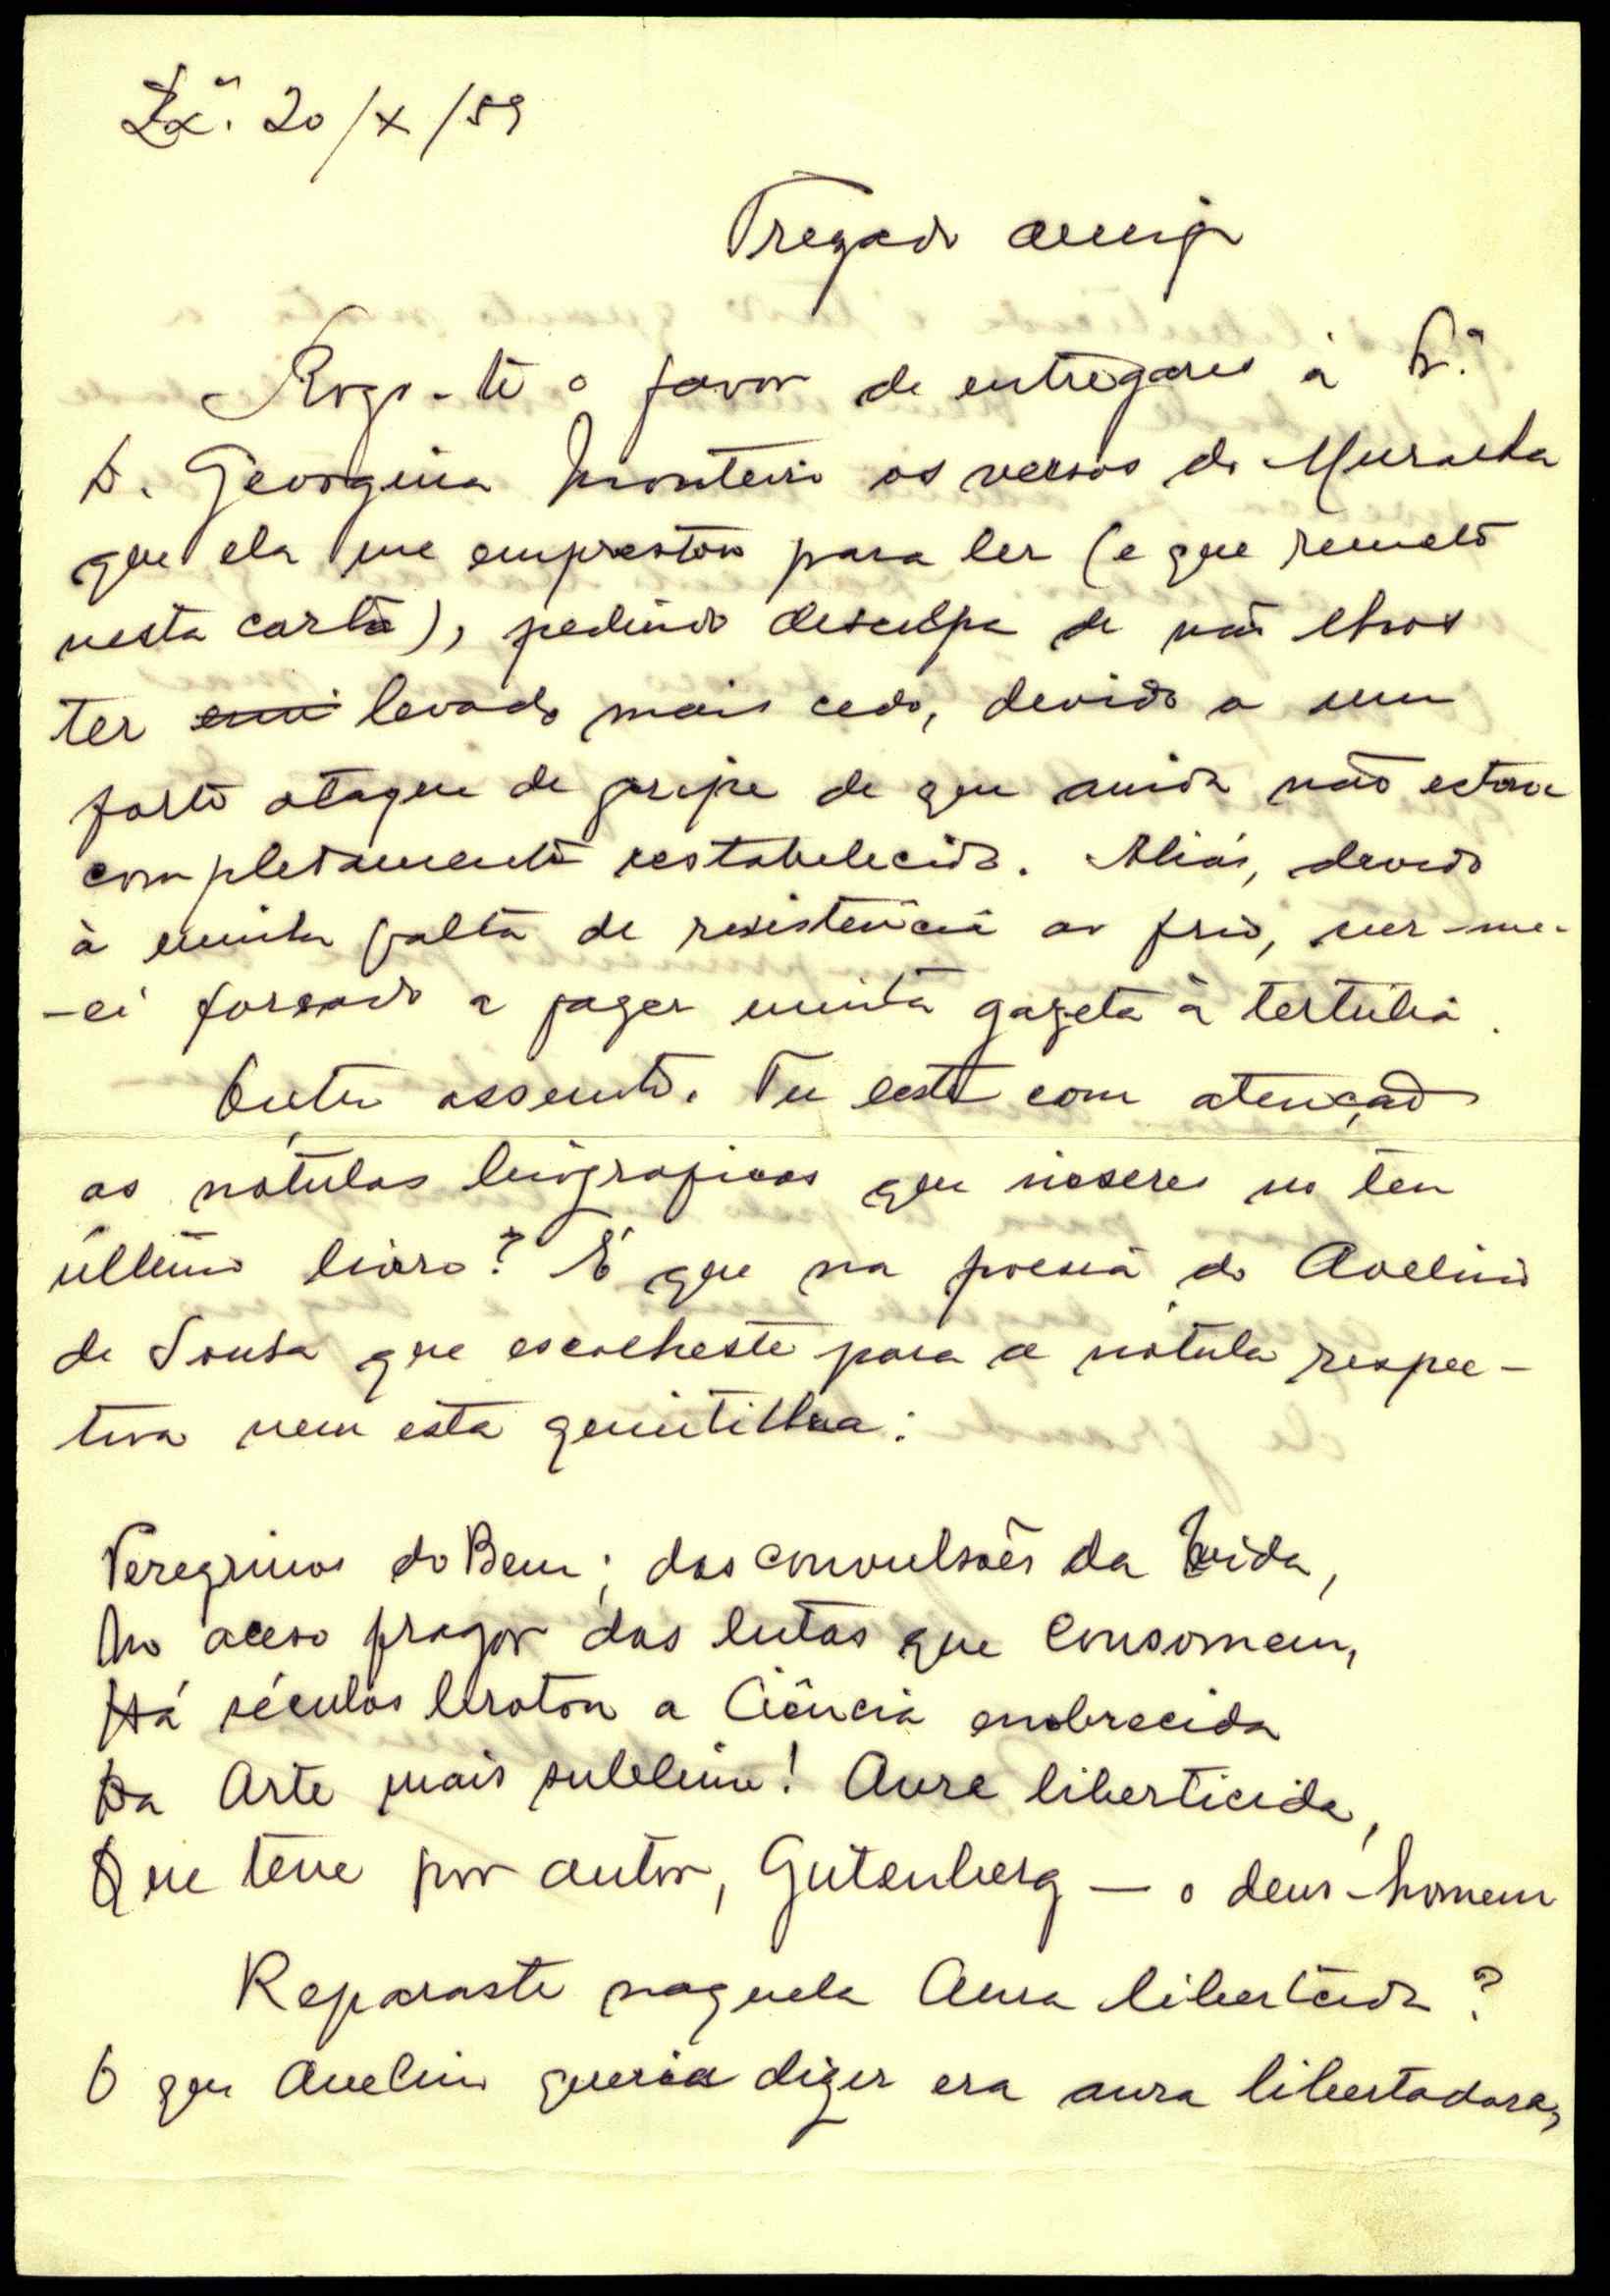 Lx.ª 20/X/59
Prezado amigo
Rogo-te o favor de entregares à Sr.ª
D. Georgina Monteiro os versos do Muralha
que ela me emprestou para ler (e que remeto
nesta carta), pedindo desculpa de não lhos
ter levado mais cedo, devido a um
forte ataque de gripe de que ainda não estou
completamente restabelecido. Aliás, devido
à minha falta de resistência ao frio, ver-me-
-ei forçado a fazer muita gazeta à tertúlia.
Outro assunto. Tu leste com atenção
as nótulas biográficas que inseres no teu
último livro? É que na poesia do Avelino
de Sousa que escolheste para a nótula respec-
tiva vem esta quintilha:
Peregrinos do Bem; das convulsões da Vida,
No aceso fragor das lutas que consomem,
Há séculos brotou a Ciência enobrecida
Da Arte mais sublime! Aura liberticida,
Que teve por autor, Gutenberg — o deus-homem
Reparaste naquela Aura liberticida?
O que Avelino queria dizer era aura libertadora,